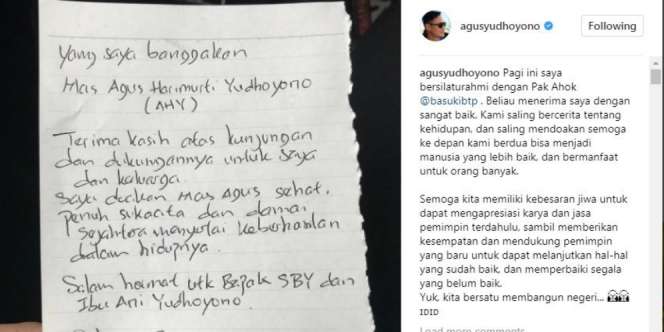 Yang saya banggakan
Mas Agus Harimurti Yudhoyono
(AHY)
Terima kasih atas kunjungan
dan dukungannya untuk saya
dan keluarga.
Saya doakan Mas Agus sehat,
penuh sukacita dan damai
sejahtera menyertai keberhasilan
dalam hidupnya.
Salam hormat utk Bapak SBY dan
Ibu Ani Yudhoyono
agusyudhoyono
Following
agusyudhoyono Pagi ini saya
bersilaturahmi dengan Pak Ahok
@basukibtp . Beliau menerima saya dengan
sangat baik. Kami saling bercerita tentang
kehidupan, dan saling mendoakan semoga
ke depan kami berdua bisa menjadi
manusia yang lebih baik, dan bermanfaat
untuk orang banyak.
Semoga kita memiliki kebesaran jiwa untuk
dapat mengapresiasi karya dan jasa
pemimpin terdahulu, sambil memberikan
kesempatan dan mendukung pemimpin
yang baru untuk dapat melanjutkan hal-hal
yang sudah baik, dan memperbaiki segala
yang belum baik.
Yuk, kita bersatu membangun negeri...
IDID
Load more comments